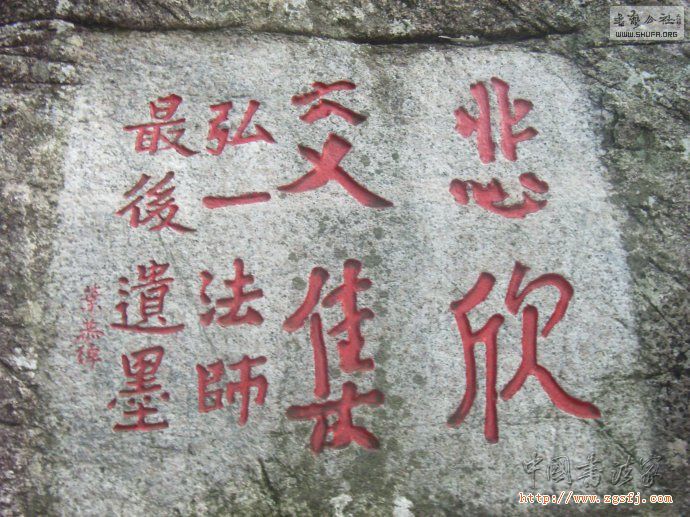 悲欣
交集
弘一法師
最後遺墨
葉恭綽
書法公社
WWW.SHUFA.ORG
中國書法家
http://www.zgsfj.com